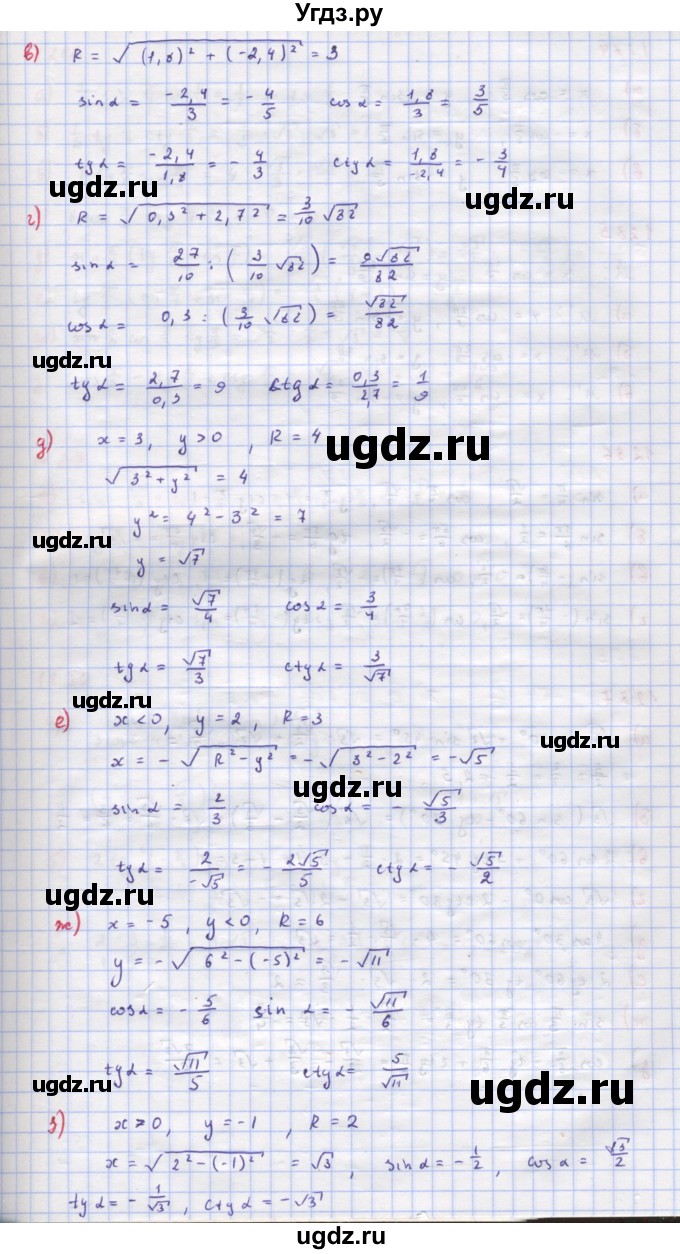 Угдз.ру
в) R = √((1,8)² + (-2,4)²) = 3
sin α = -2,4/3 = -4/5 cos α = 1,8/3 = 3/5
tg α = -2,4/1,8 = -4/3 ctg α = 1,8/-2,4 = -3/4
ugdz.ru ugdz.ru
г) R = √(0,3² + 2,7²) = 3/10 √82
sin α = 27/10 : (3/10 √82) = 9√82/82
cos α = 0,3 : (3/10 √82) = √82/82
ugdz.ru
tg α = 2,7/0,3 = 9 ctg α = 0,3/2,7 = 1/9
д) x = 3, y > 0, R = 4
ugdz.ru
√(3² + y²) = 4
y² = 4² - 3² = 7
ugdz.ru
y = √7
sin α = √7/4 cos α = 3/4
tg α = √7/3 ctg α = 3/√7
ugdz.ru
е) x < 0, y = 2, R = 3
ugdz.ru
x = -√(R² - y²) = -√(3² - 2²) = -√5
ugdz.ru
sin α = 2/3 cos α = -√5/3
tg α = 2/-√5 = -2√5/5 ctg α = -√5/2
ugdz.ru
ж) x = -5, y < 0, R = 6
y = -√(6² - (-5)²) = -√11
cos α = -5/6 sin α = -√11/6
tg α = √11/5 ctg α = 5/√11
ugdz.ru ugdz.ru
з) x > 0, y = -1, R = 2
x = √(2² - (-1)²) = √3, sin α = -1/2, cos α = √3/2
tg α = -1/√3, ctg α = -√3
ugdz.ru